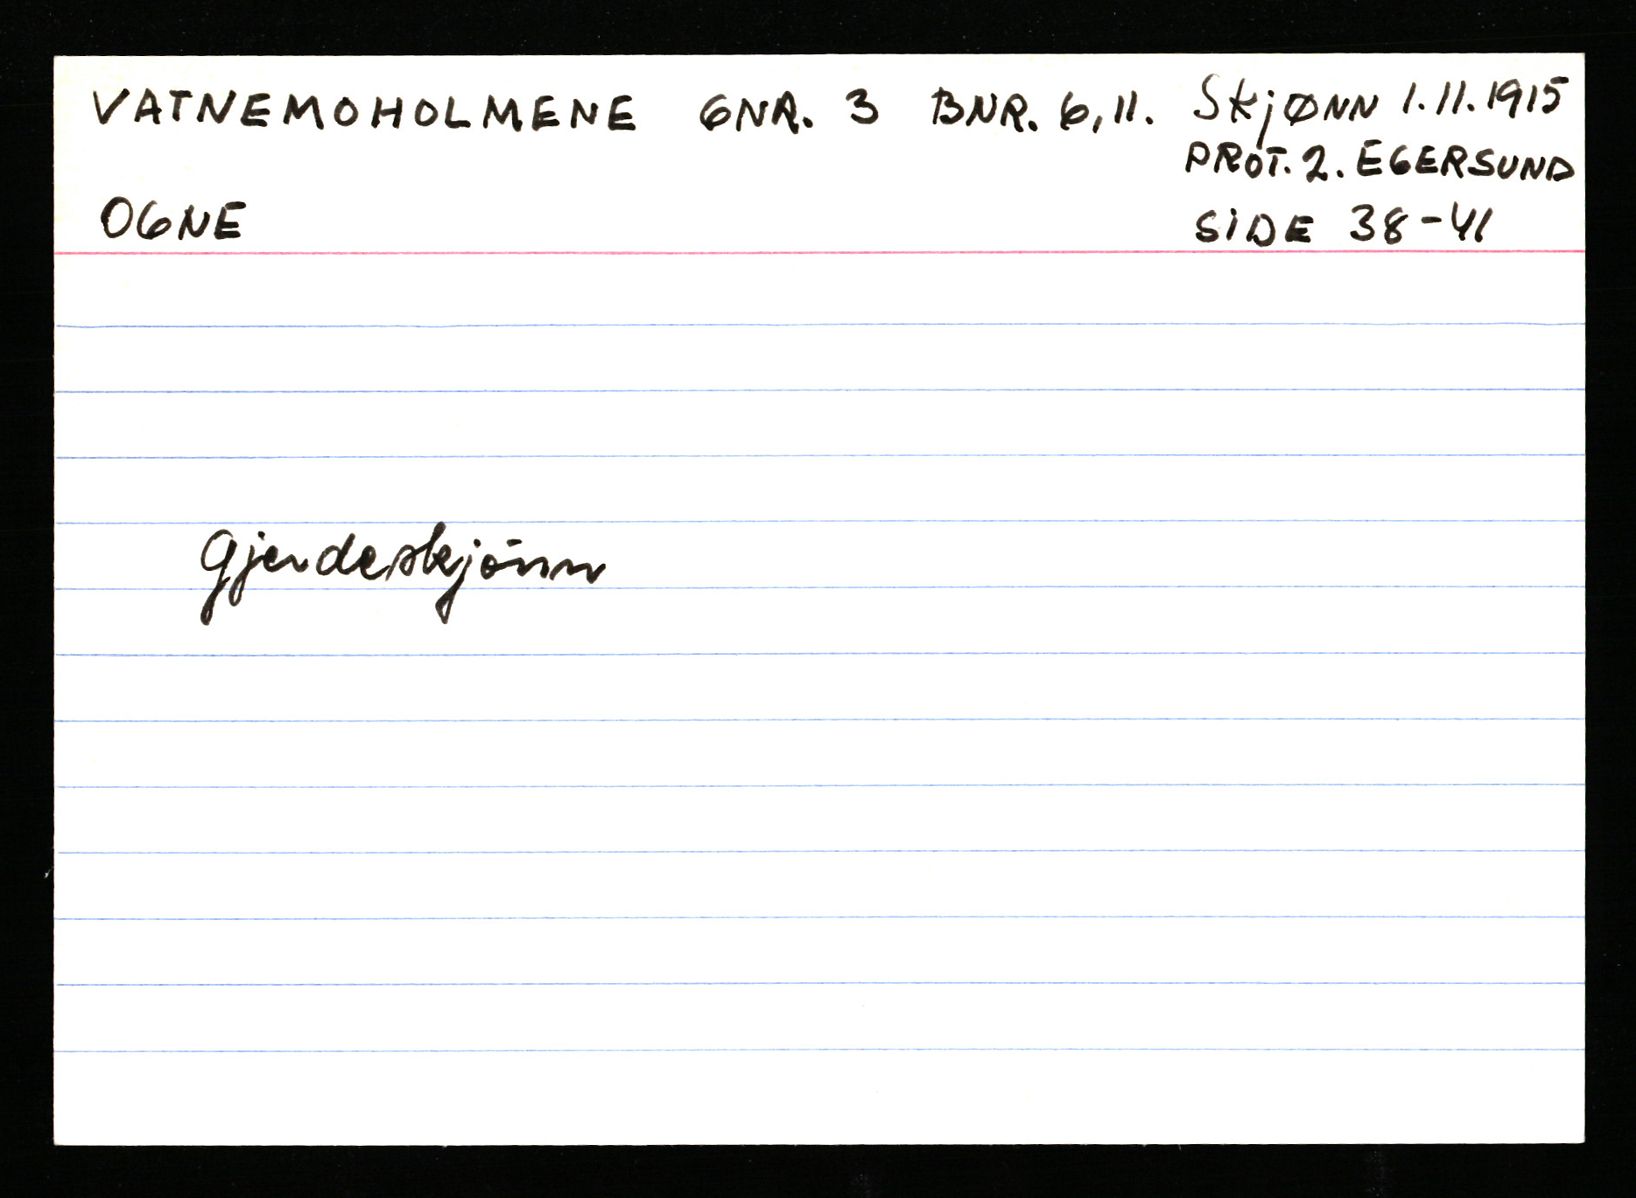 VATNEMOHOLMENE GNR. 3 BNR. 6,11. SkjØNN 1.11.1915
PROT. 2. EGERSUND
OGNE SiDE 38-41
Gjerdeskjönn